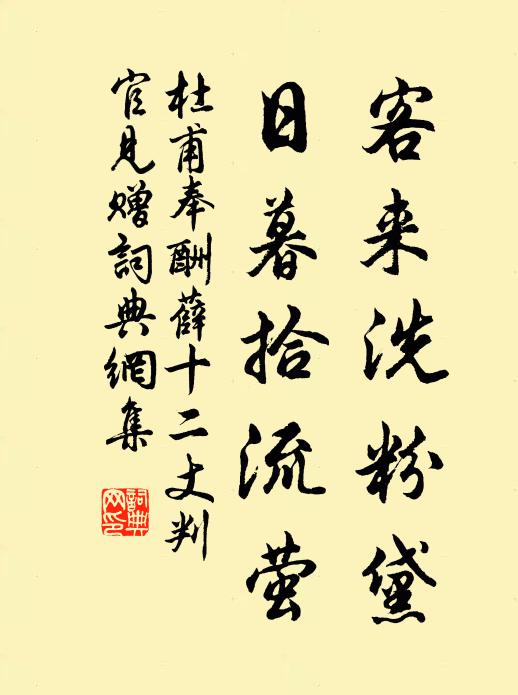 客来洗粉黛
日暮拾流萤
杜甫奉酬薛十二丈判
官見赠詞典網集
詞典
网印